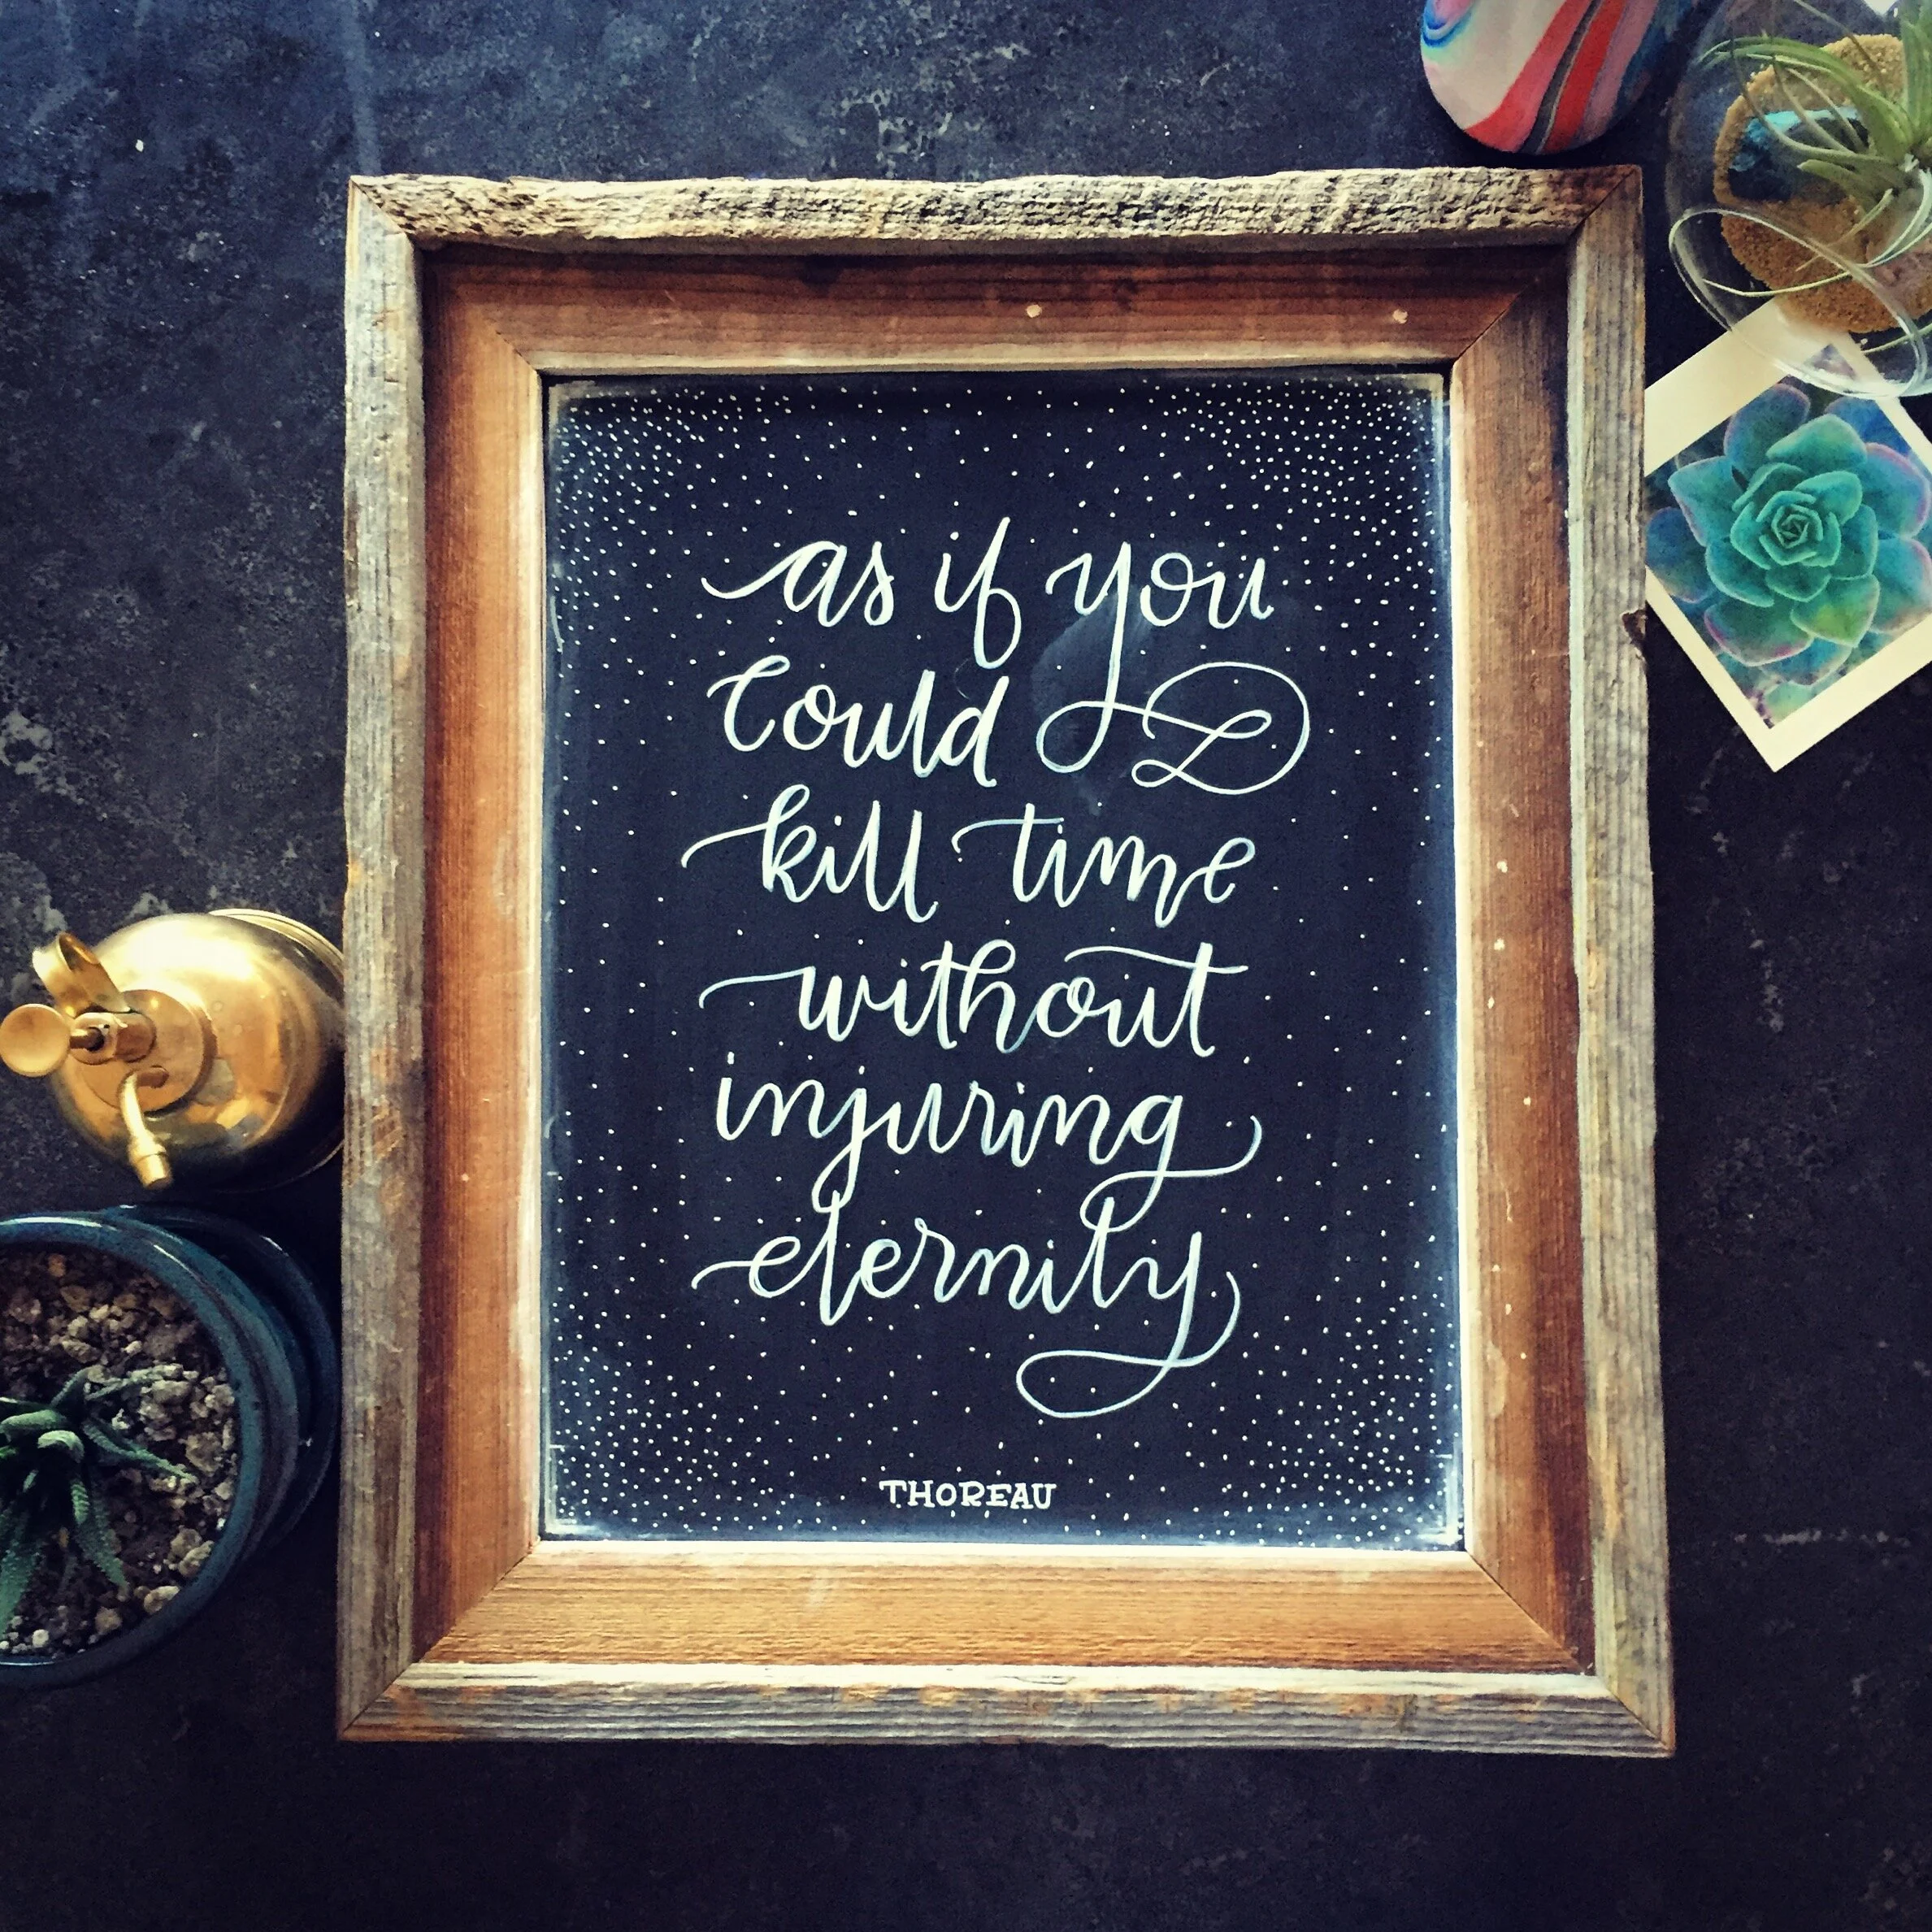 as if you
could
kill time
without
injuring
eternity
THOREAU